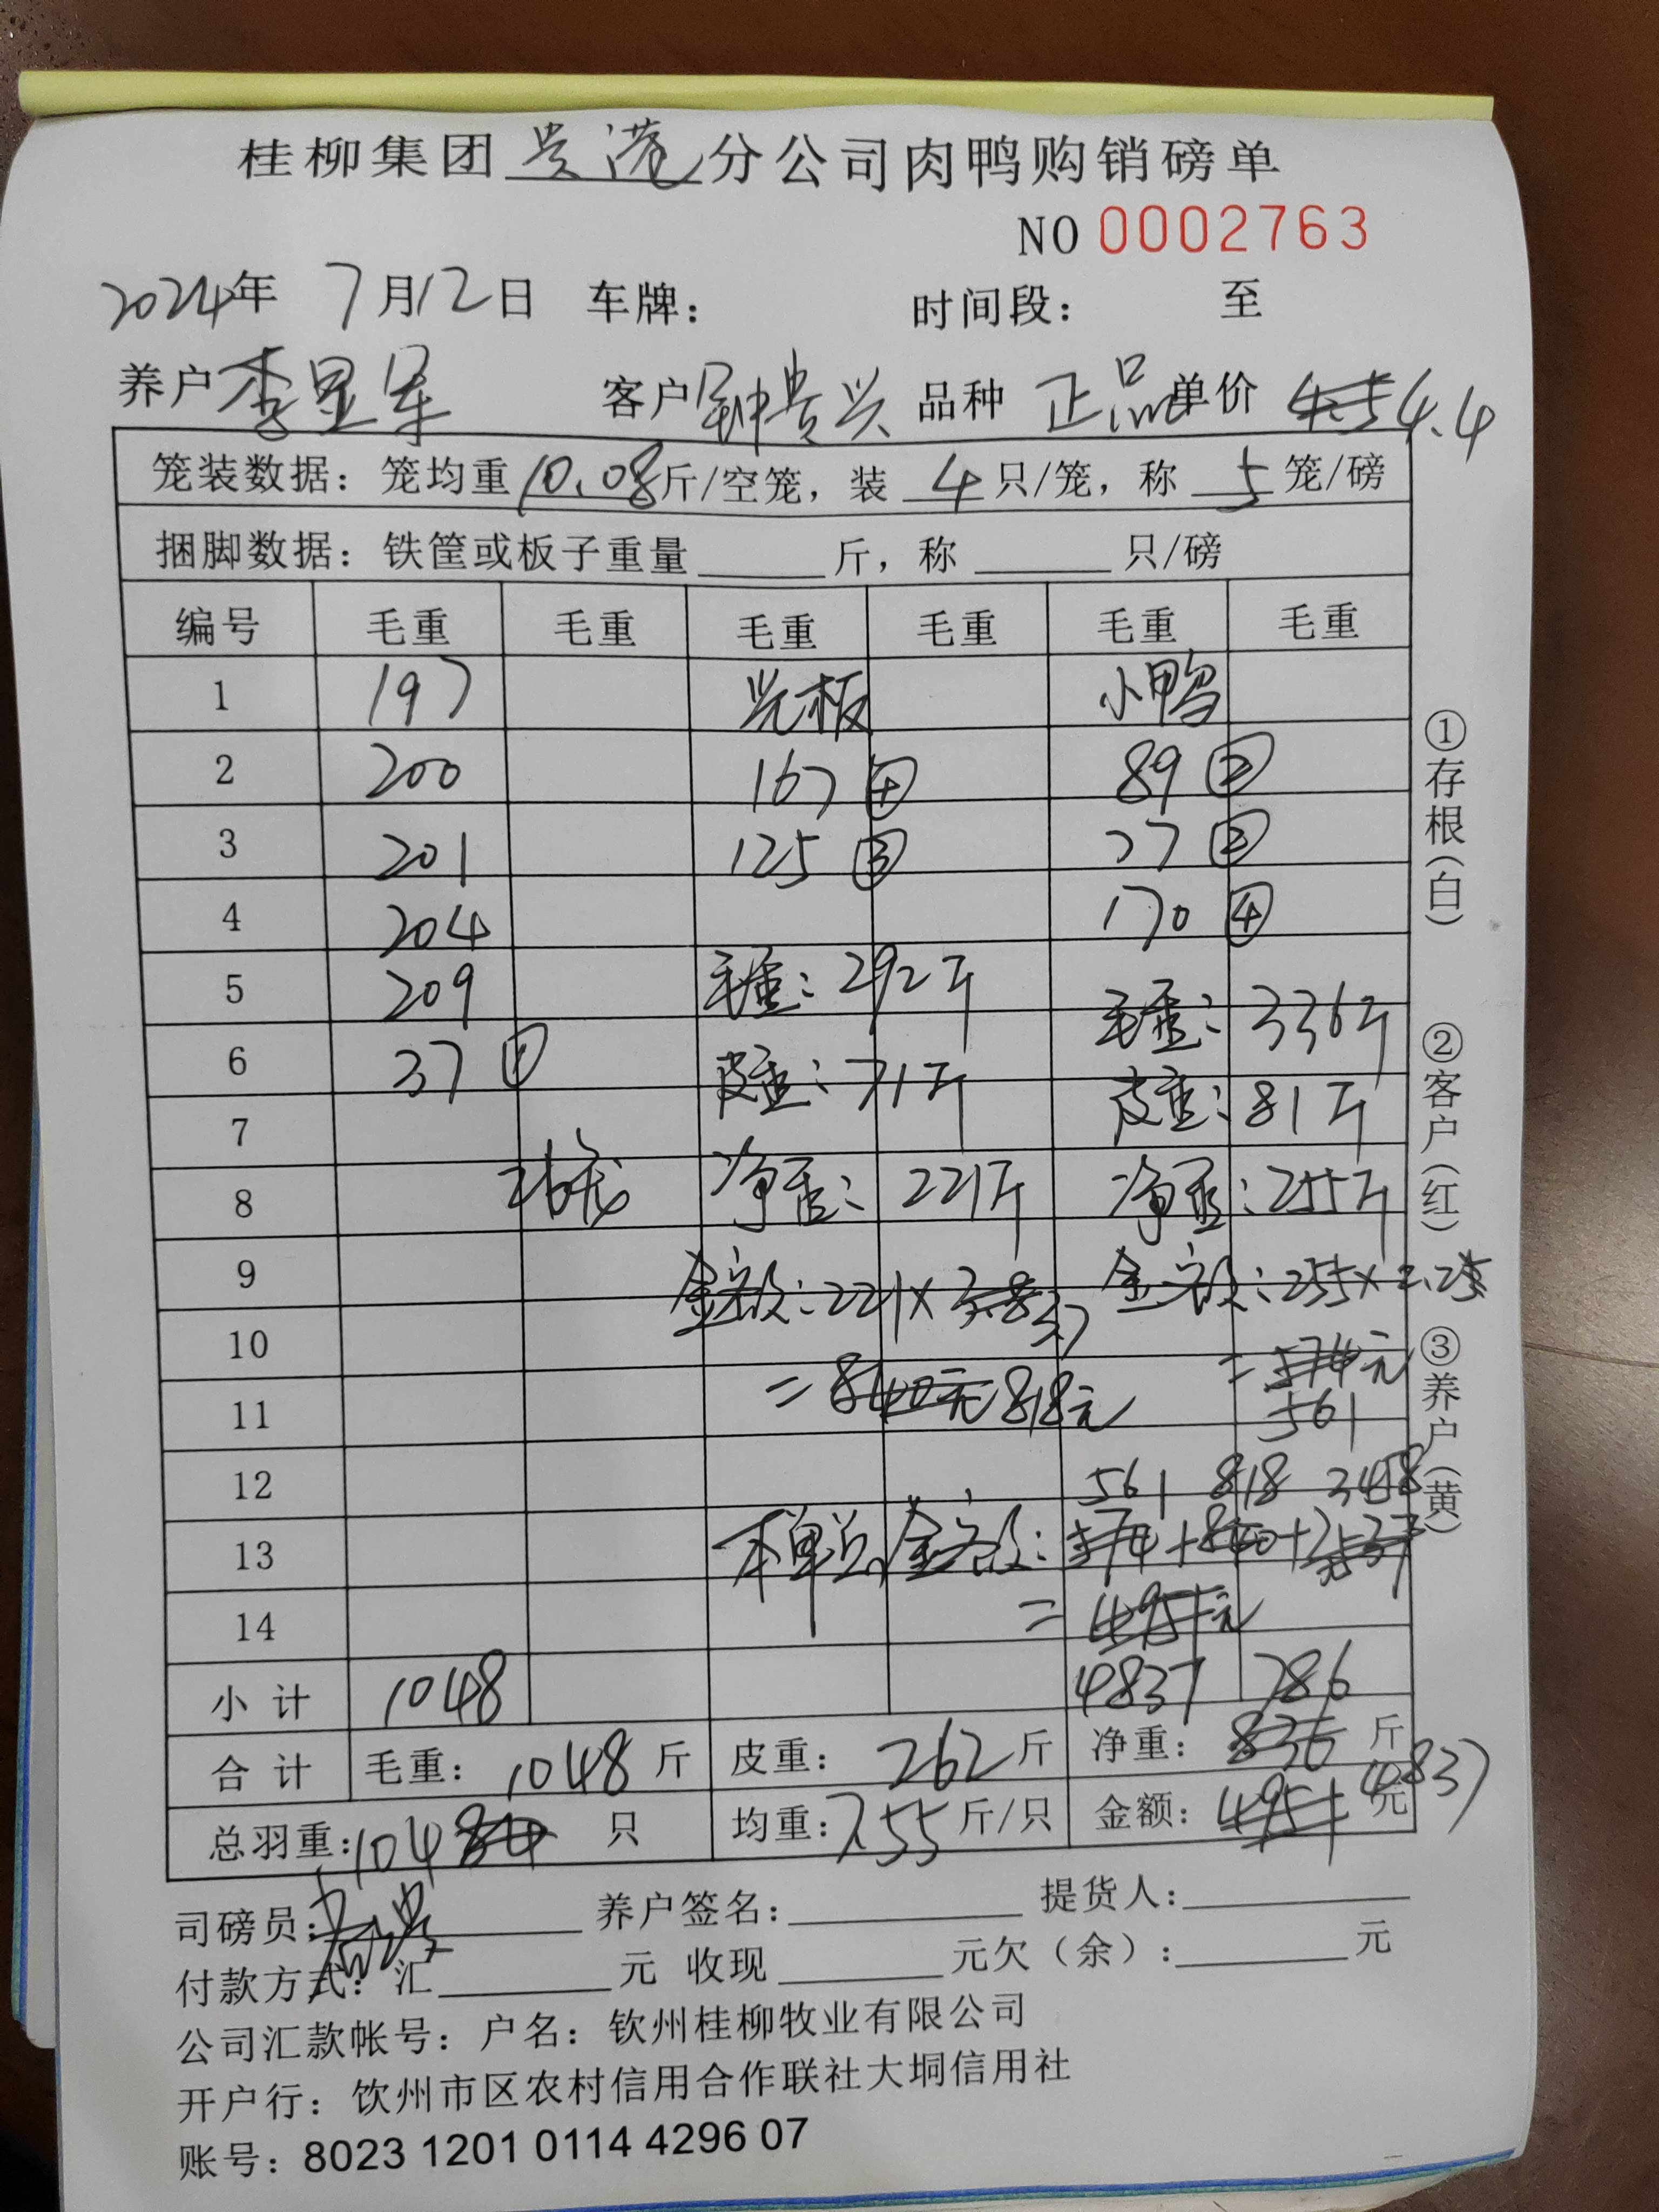 桂柳集团贵港分公司肉鸭购销磅单
NO 0002763
2024年 7月12日 车牌： 时间段： 至
养户李显军 客户钟贵兴 品种 正品 单价 4.5 4.4
笼装数据：笼均重10.08斤/空笼，装 4 只/笼，称 5 笼/磅
捆脚数据：铁筐或板子重量____斤，称____只/磅
编号 毛重 毛重 毛重 毛重 毛重 毛重
1 197 光板 小鸭
2 200 167 ④ 89 ②
3 201 125 ③ 77 ②
4 204 170 ④
5 209 毛重：292斤 毛重：336斤
6 37 ① 皮重：71斤 皮重：81斤
7
8 净重：221斤 净重：255斤
9 金额：221×3.8 3.7 金额：255×2.2
10 =574元
11 =840元 818元 561
12 561 818 3458
13 本单总金额：574+840+3537
14 =4951元
小计 1048 4837 786
合计 毛重：1048斤 皮重：262斤 净重：836斤
总羽重：104 84 只 均重：7.55斤/只 金额：4951元 4837
司磅员： 养户签名： 提货人：
付款方式：汇____元 收现____元欠（余）：____元
公司汇款帐号：户名：钦州桂柳牧业有限公司
开户行：饮州市区农村信用合作联社大垌信用社
账号：8023 1201 0114 4296 07
①存根（白） ②客户（红） ③养户（黄）